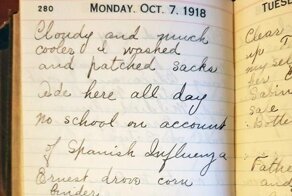 280 MONDAY, OCT. 7, 1918
Cloudy and much
cooler I washed
and patched sacks
here all day
No school on account
of Spanish Influenza
Ernest drove corn
binder
TUES
Clear
up T
my sel
her
Sabin
sale
Bott
Fathe
and